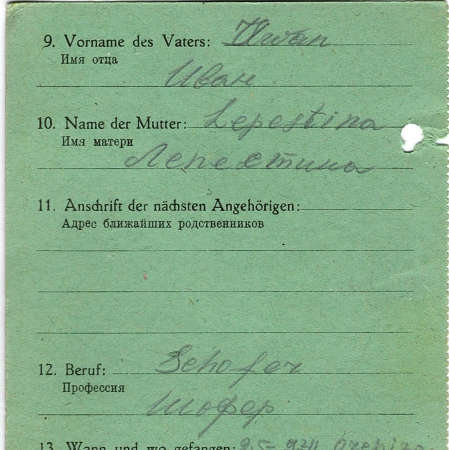 9. Vorname des Vaters: Iwan
Имя отца
Иван
10. Name der Mutter: Lepestina
Имя матери
Лепестина
11. Anschrift der nächsten Angehörigen:
Адрес ближайших родственников
12. Beruf: Schofer
Профессия
Шофер
13. Wann und wo gefangen: